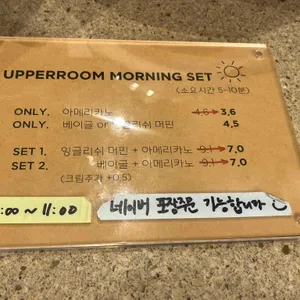 UPPERROOM MORNING SET
(소요시간 5-10분)
ONLY. 아메리카노 4.6→3,6
ONLY. 베이글 or 잉글리쉬 머핀 4,5
SET 1. 잉글리쉬 머핀 + 아메리카노 9.1→7,0
SET 2. 베이글 + 아메리카노 9.1→7,0
(크림추가 +0.5)
:00 ~ 11:00
네이버 포장주문 가능합니다